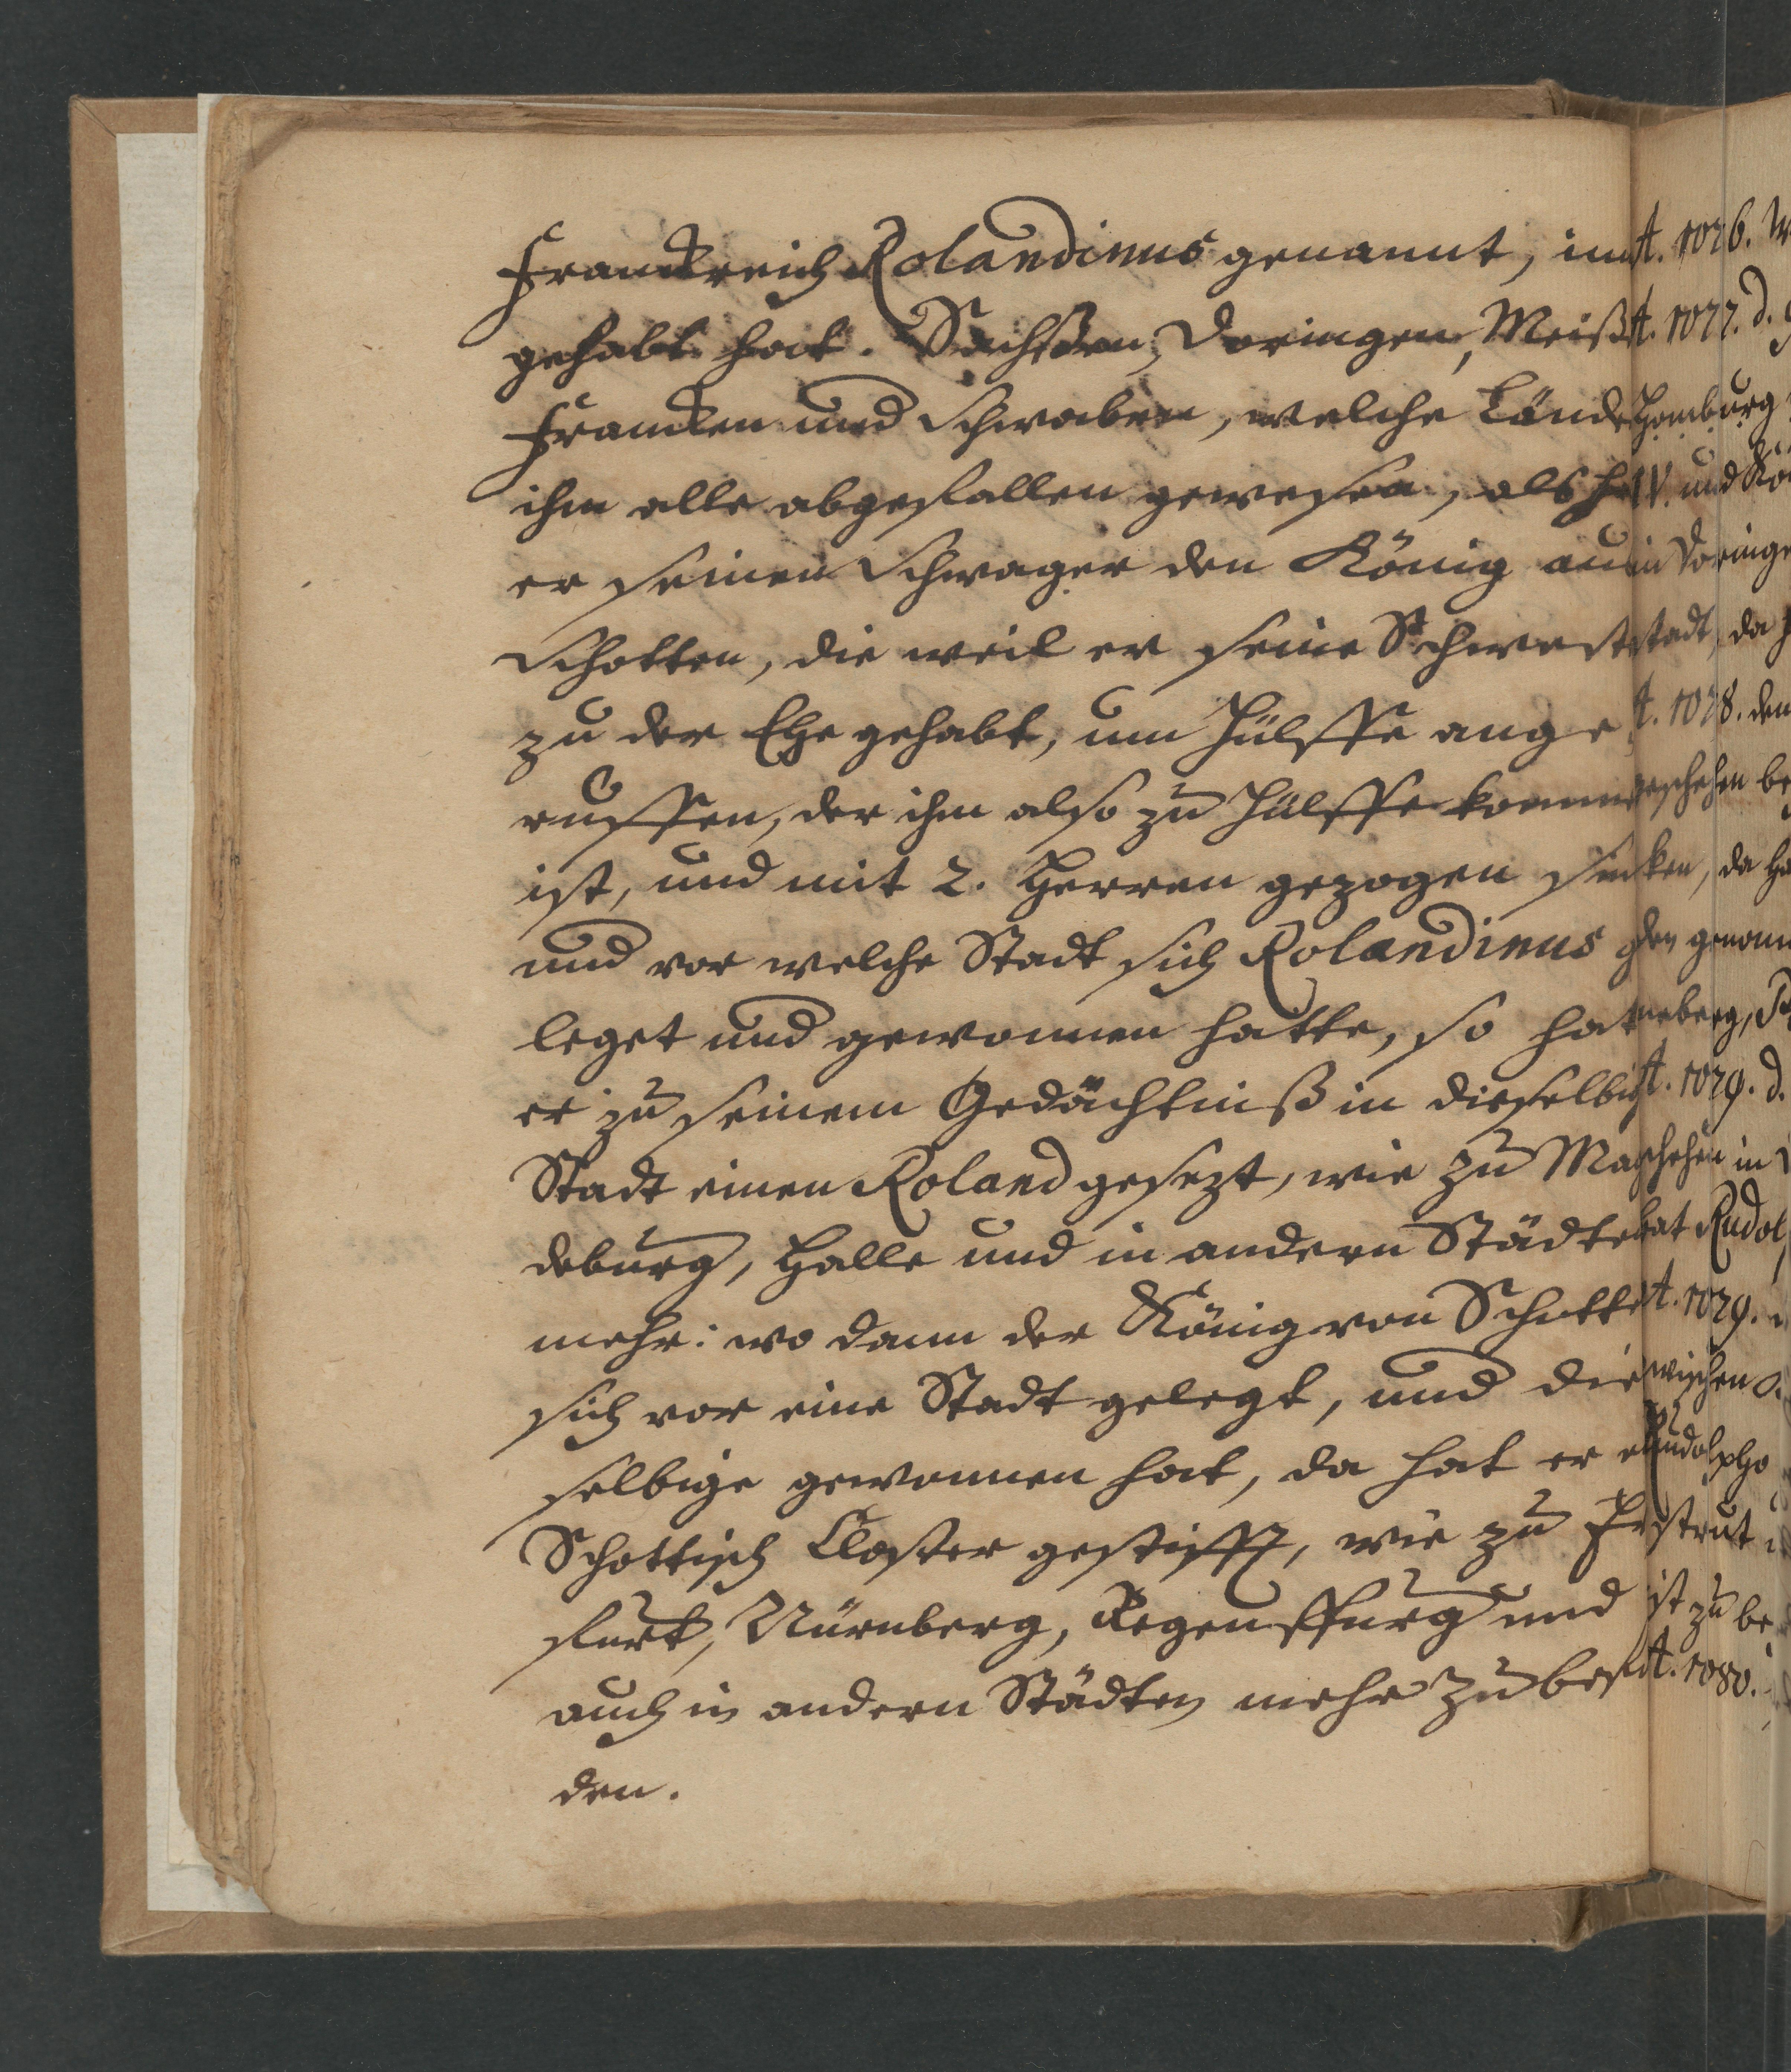 Franckreich Rolandinus genannt, inn
gehabt hat. Sachßen, Doringen, Meiß
Francken und Schwaben, welche Lände
ihm alle abgefallen gewesen, als h
er seinen Schwager den König auß
Schotten, die weil er seine Schwest
zu der Ehe gehabt, um Hülffe ange
ruffen, der ihm also zu Hülffe komm
ist, und mit 2. Herren gezogen sin
und vor welche Stadt sich Rolandinus ge
leget und gewonnen hatte, so hat
er zu seinem Gedächtniß in dieselbig
Stadt einen Roland gesezt, wie zu Mag
deburg, Halle und in andern Städte
mehr: wo dann der König von Schotte
sich vor eine Stadt gelegt, und die
selbige gewonnen hat, da hat er e
Schottisch Closter gestifft, wie zu Er
furt, Nürnberg, Regenspurg und
auch in andern Städten mehr zu befin
den.
A. 1076. W
A. 1077. d.
Homburg
IV. und Kö
in Doringe
stadt, da
A. 1078. den
geschehen be
cken, da
gen genom
neberg,
A. 1079. d.
schehen in
hat Rudol
A. 1079.
wischen
Rudolpho
strut
ist zu be
A. 1080.